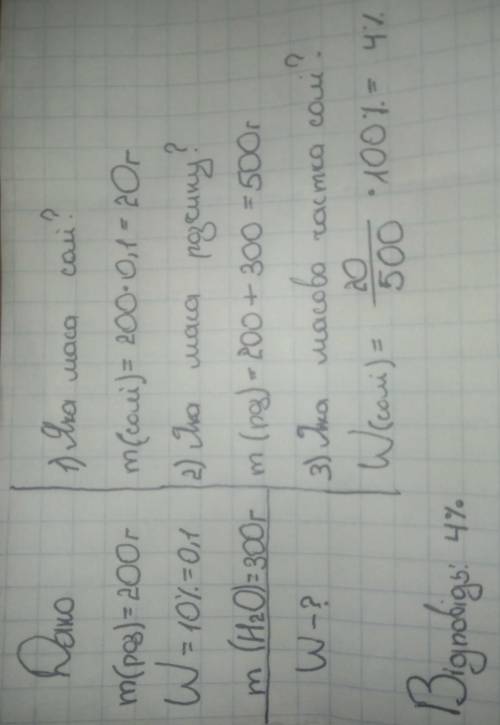 Дано
m(роз)=200г
W=10%=0,1
m(H₂O)=300г
W-?
1) Яка маса солі?
m(солі)= 200·0,1=20г
2) Яка маса розчину?
m(роз)=200+300=500г
3) Яка масова частка солі?
W(солі)= 20/500 ·100%= 4%
Відповідь: 4%